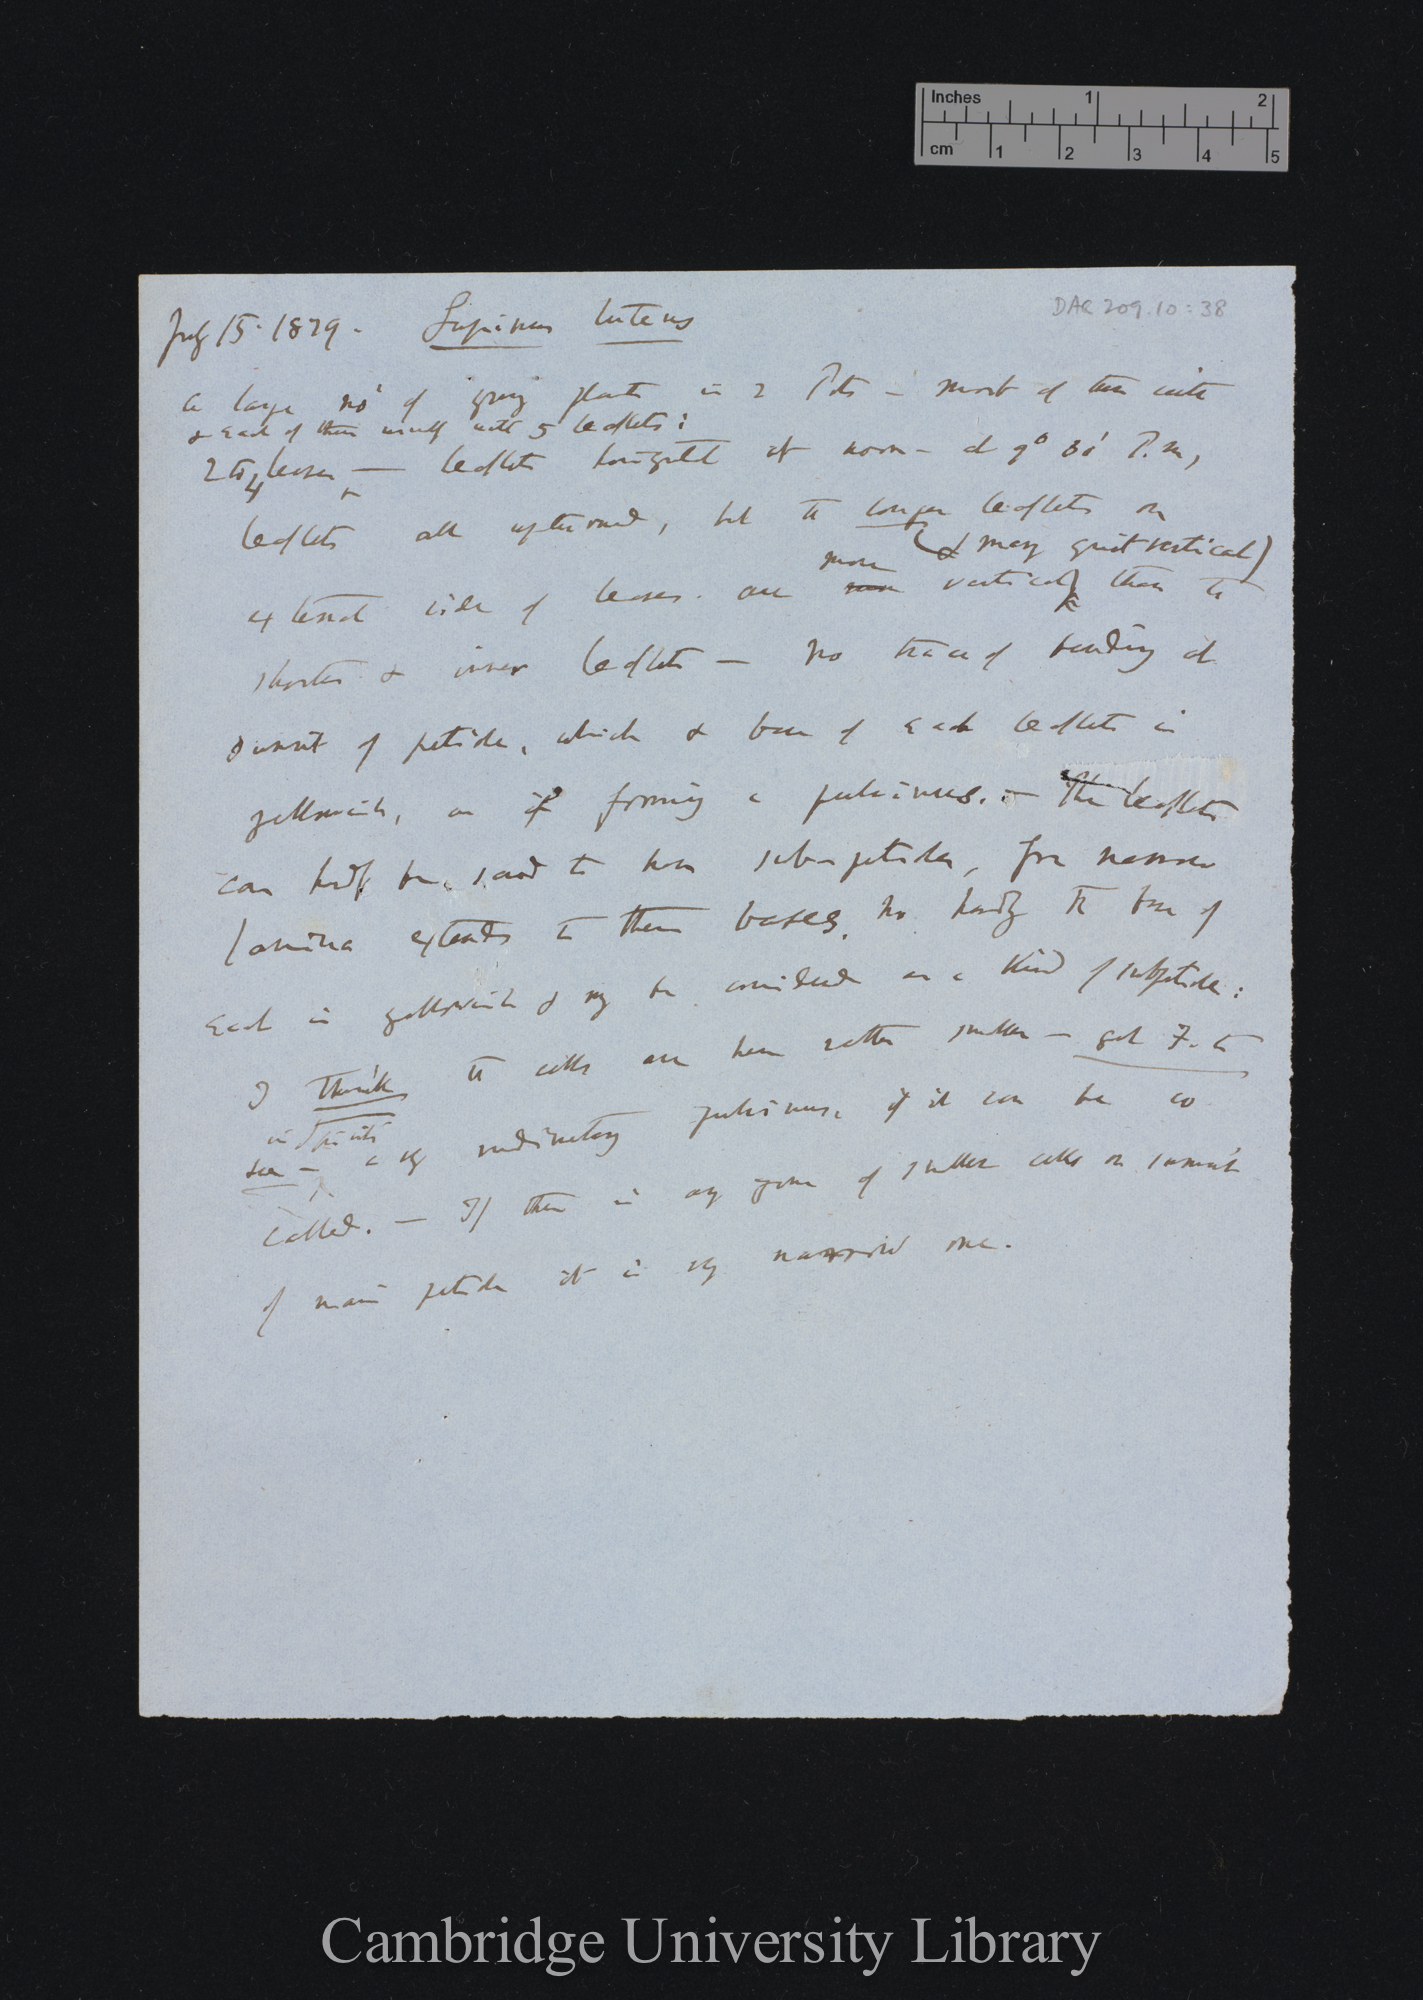 Inches 1 2
cm 1 2 3 4 5
DAR 209.10:38
July 15. 1879. Lupinus luteus
a large no of young plants in 2 Pots — most of them with
& each of them usually with 5 leaflets:
2 to 4 leaves — leaflets horizontal at noon — at 9° 30' P.m,
leaflets all upturned, but the longer leaflets on
(& many quite vertical)
more
external side of leaves are vertical than the
shorter & inner leaflets — No trace of bending at
summit of petiole, which & base of each leaflets is
yellowish, as if forming a pulvinus. — The leaflets
can hardly be said to have sub-petioles, for narrow
lamina extends to their bases, no hardly the base of
each is yellowish & may be considered as a kind of subpetiole:
I think the cells are here rather smaller — get F. to
in spirits
see — a very rudimentary pulvinus, if it can be so
called. — If there is any zone of smaller cells on summit
of main petiole it is very narrow one.
Cambridge University Library